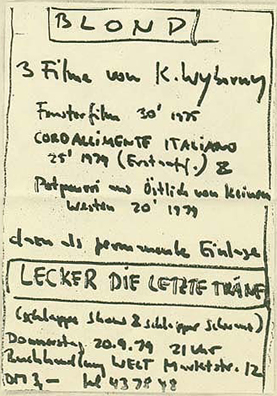 BLOND
3 Filme von K. Wyborny
Fensterfilm 30' 1975
CORDALLIMENTE ITALIANO
25' 1979 (Erstauff.) &
Potpourri aus Östlich von Keinem
Westen 20' 1979
dazu als permanente Einlage
LECKER DIE LETZTE TRÄNE
(schlappe Shows & schlapper Schwums)
Donnerstag 20.9.79 21 Uhr
Buchhandlung WELT Marktstr. 12
DM 3,-